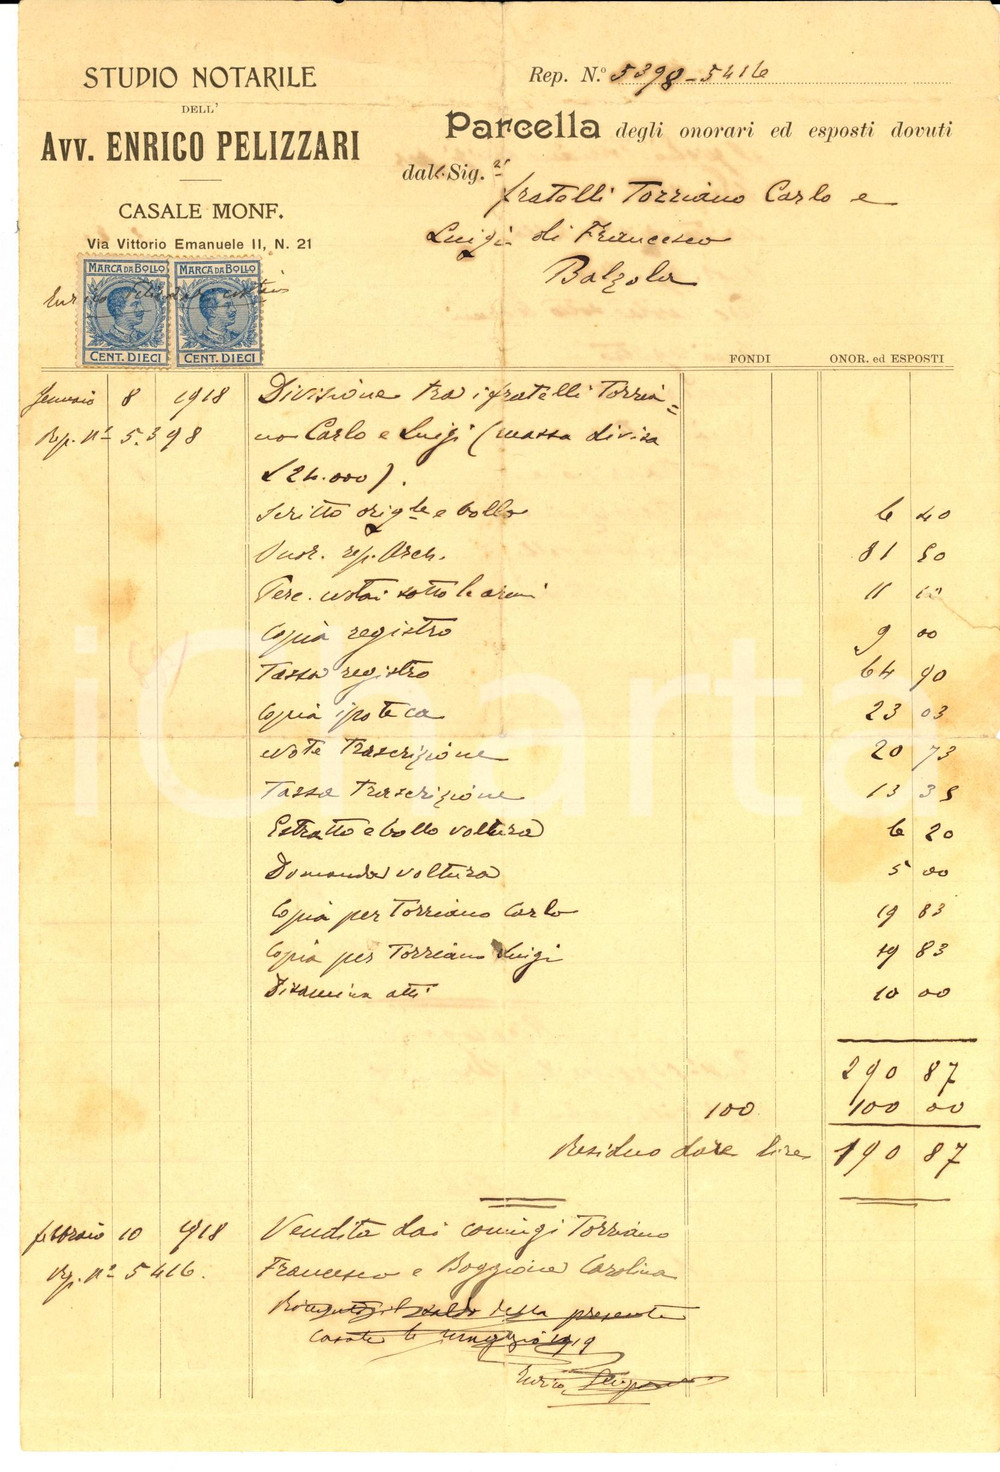 STUDIO NOTARILE
DELL'
Avv. ENRICO PELIZZARI
CASALE MONF.
Via Vittorio Emanuele II, N. 21
MARCA DA BOLLO MARCA DA BOLLO
CENT. DIECI CENT. DIECI
Rep. N.º 5398-5416
Parcella degli onorari ed esposti dovuti
dai Sig.ri fratelli Torriano Carlo e
Luigi di Francesco
Balzola
FONDI ONOR. ed ESPOSTI
Gennaio 8 1918 Divisione tra i fratelli Torria=
Rep. nº 5.398 no Carlo e Luigi (massa divisa
L 24.000).
Scritto orig.le e bollo 6 40
Onor. rep. Arch. 81 50
Perc. notai sotto le armi 11 10
Copia registro 9 00
Tassa registro 64 90
Copia ipoteca 23 03
Note Trascrizione 20 73
Tassa Trascrizione 13 35
Estratto e bollo voltura 6 20
Domanda voltura 5 00
Copia per Torriano Carlo 19 83
Copia per Torriano Luigi 19 83
Disamina atti 10 00
290 87
100 100 00
Residuo dare lire 190 87
febbraio 10 1918 Vendita dai coniugi Torriano
Rep. nº 5416. Francesco e Boggione Carolina
saldo della presente
Casale 6 1919
Enrico
iCharta